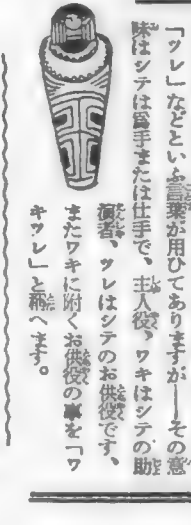 「ツレ」などといふ言葉が用ひてありますが――その意
味はシテは爲手または仕手で、主人役、ワキはシテの助
演者、ツレはシテのお供役です、
またワキに附くお供役の事を「ワ
キツレ」と稱へます。